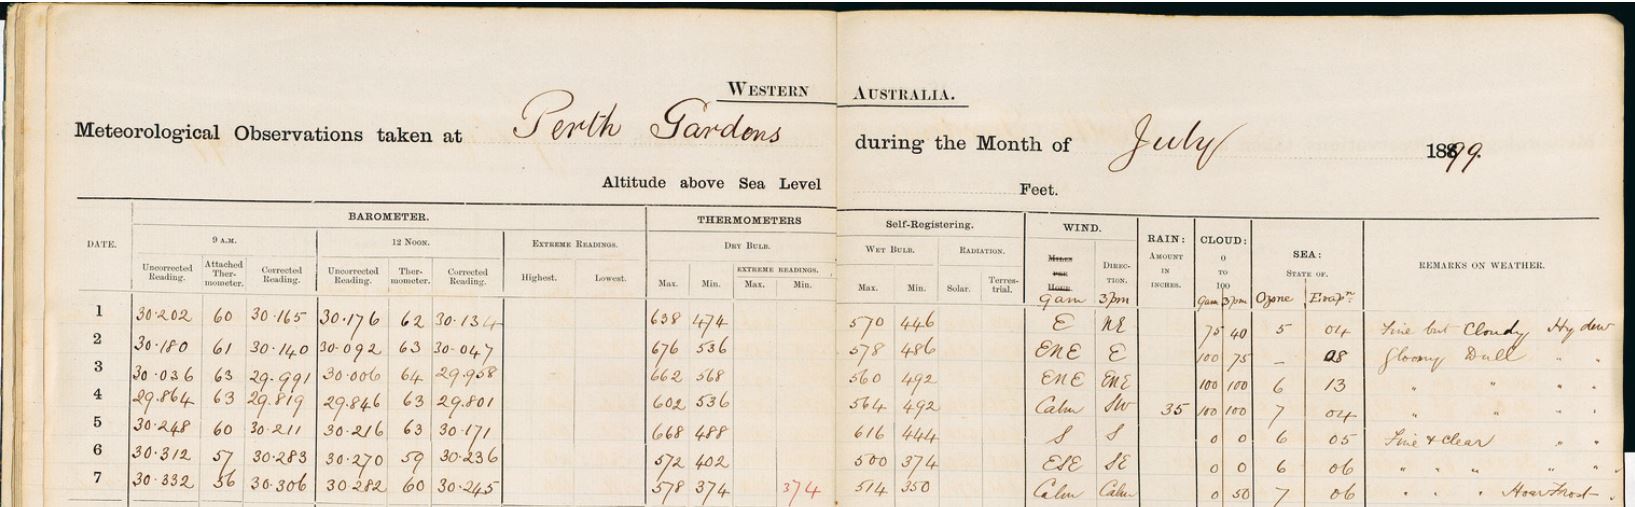 WESTERN AUSTRALIA.
Meteorological Observations taken at Perth Gardens during the Month of July 1899.
Altitude above Sea Level Feet.
BAROMETER. THERMOMETERS Self-Registering. WIND. RAIN: CLOUD: SEA:
DATE. 9 A.M. 12 NOON. EXTREME READINGS. DRY BULB. WET BULB. RADIATION. MILES PER HOUR. DIRECTION. AMOUNT IN INCHES. 0 TO 100 STATE OF. REMARKS ON WEATHER.
Uncorrected Reading. Attached Thermometer. Corrected Reading. Uncorrected Reading. Thermometer. Corrected Reading. Highest. Lowest. Max. Min. EXTREME READINGS. Max. Min. Max. Min. Solar. Terrestrial.
9am 3pm 9am 3pm Ozone Evapn.
1 30.202 60 30.165 30.176 62 30.134 638 474 570 446 E NE 75 40 5 04 Fine but Cloudy Hy dew
2 30.180 61 30.140 30.092 63 30.047 676 536 578 486 ENE E 100 75 – 08 Gloomy Dull " "
3 30.036 63 29.991 30.006 64 29.958 662 568 560 492 ENE ENE 100 100 6 13 " " " "
4 29.864 63 29.819 29.846 63 29.801 602 536 564 492 Calm SW 35 100 100 7 04 " " " "
5 30.248 60 30.211 30.216 63 30.171 668 488 616 444 S S 0 0 6 05 Fine & Clear " "
6 30.312 57 30.283 30.270 59 30.236 572 402 500 374 ESE SE 0 0 6 06 " " " " "
7 30.332 56 30.306 30.282 60 30.245 578 374 374 514 350 Calm Calm 0 50 7 06 " " " Hoar Frost "